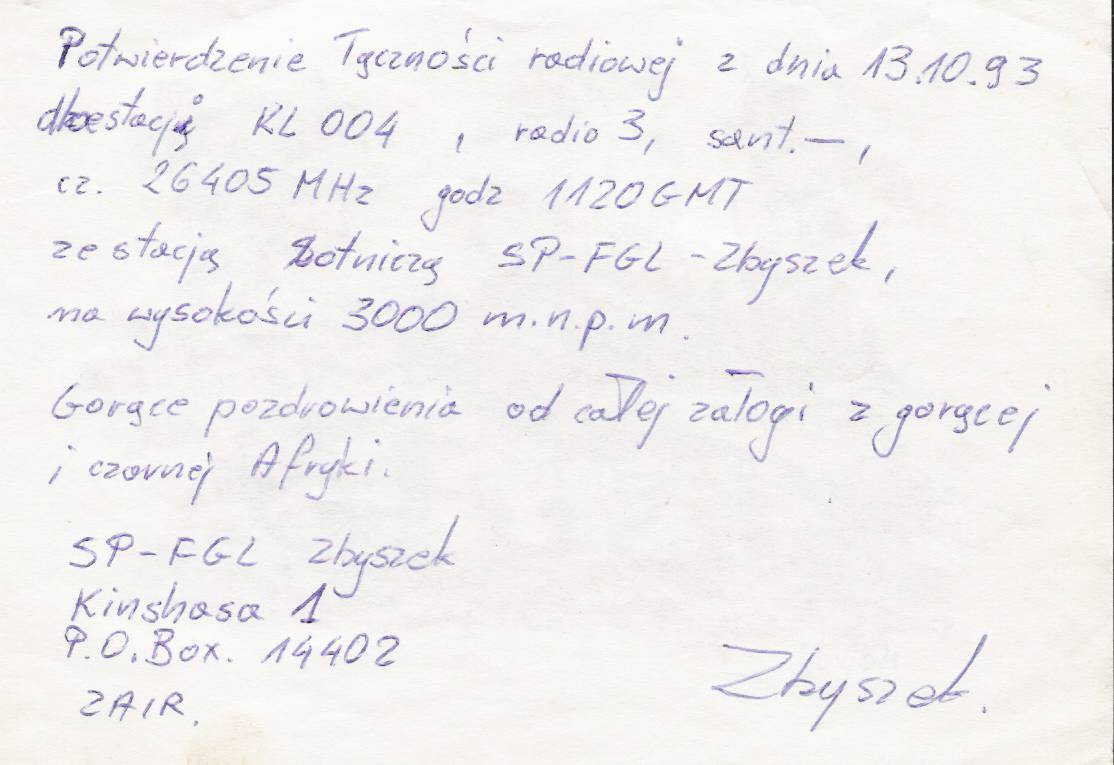 Potwierdzenie Łączności radiowej z dnia 13.10.93
stacją KL 004 , radio 3, sant.—,
cz. 26405 MHz godz 1120GMT
ze stacją Lotniczą SP-FGL -Zbyszek,
na wysokości 3000 m.n.p.m.
Gorące pozdrowienia od całej załogi z gorącej
i czarnej Afryki.
SP-FGL Zbyszek
Kinshasa 1
P.O.Box. 14402
ZAIR.
Zbyszek.